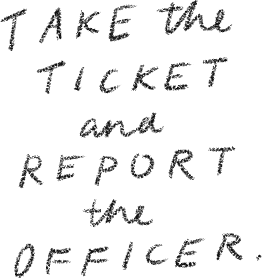 TAKE the
TICKET
and
REPORT
the
OFFICER.